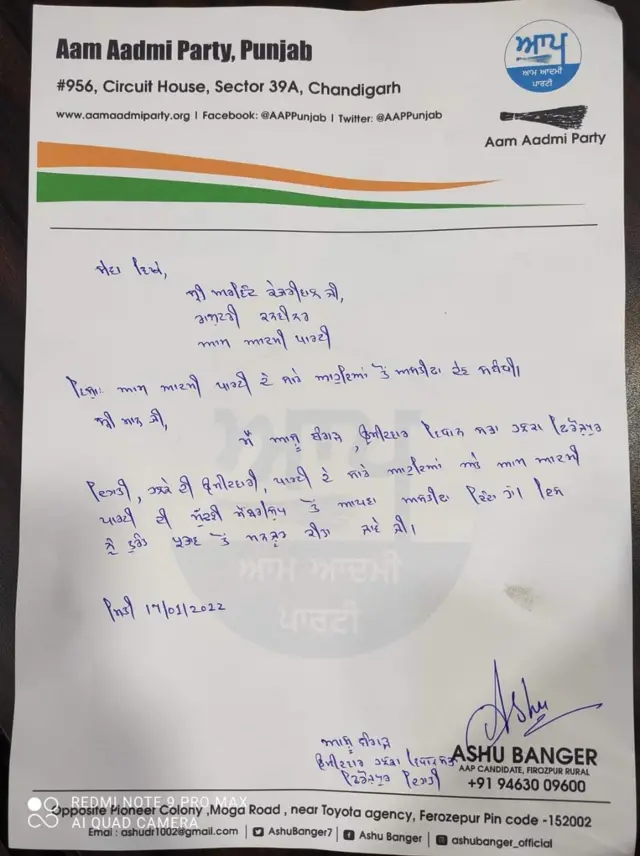 Aam Aadmi Party, Punjab
#956, Circuit House, Sector 39A, Chandigarh
www.aamaadmiparty.org | Facebook: @AAPPunjab | Twitter: @AAPPunjab
ਆਪ
ਆਮ ਆਦਮੀ
ਪਾਰਟੀ
Aam Aadmi Party
ਸੇਵਾ ਵਿਖੇ,
ਸ਼੍ਰੀ ਅਰਵਿੰਦ ਕੇਜਰੀਵਾਲ ਜੀ,
ਰਾਸ਼ਟਰੀ ਕਨਵੀਨਰ
ਆਮ ਆਦਮੀ ਪਾਰਟੀ
ਵਿਸ਼ਾ: ਆਮ ਆਦਮੀ ਪਾਰਟੀ ਦੇ ਸਾਰੇ ਆਹੁਦਿਆਂ ਤੋਂ ਅਸਤੀਫਾ ਦੇਣ ਸਬੰਧੀ।
ਸ਼੍ਰੀ ਮਾਨ ਜੀ,
ਮੈਂ ਆਸ਼ੂ ਬੰਗੜ, ਉਮੀਦਵਾਰ ਵਿਧਾਨ ਸਭਾ ਹਲਕਾ ਫਿਰੋਜ਼ਪੁਰ
ਦਿਹਾਤੀ, ਹਲਕੇ ਦੀ ਉਮੀਦਵਾਰੀ, ਪਾਰਟੀ ਦੇ ਸਾਰੇ ਆਹੁਦਿਆਂ ਅਤੇ ਆਮ ਆਦਮੀ
ਪਾਰਟੀ ਦੀ ਮੁੱਢਲੀ ਮੈਂਬਰਸ਼ਿਪ ਤੋਂ ਆਪਣਾ ਅਸਤੀਫਾ ਦਿੰਦਾ ਹਾਂ। ਇਸ
ਨੂੰ ਤੁਰੰਤ ਪ੍ਰਭਾਵ ਤੋਂ ਮਨਜ਼ੂਰ ਕੀਤਾ ਜਾਵੇ ਜੀ।
ਆਪ
ਆਮ ਆਦਮੀ
ਪਾਰਟੀ
ਮਿਤੀ 17/01/2022
Ashu
ਆਸ਼ੂ ਬੰਗੜ
ਉਮੀਦਵਾਰ ਹਲਕਾ ਵਿਧਾਨ ਸਭਾ
ਫਿਰੋਜ਼ਪੁਰ ਦਿਹਾਤੀ
ASHU BANGER
AAP CANDIDATE, FIROZPUR RURAL
+91 94630 09600
Opposite Pioneer Colony ,Moga Road , near Toyota agency, Ferozepur Pin code -152002
Email : ashudr1002@gmail.com | AshuBanger7 | Ashu Banger | ashubanger_official
REDMI NOTE 9 PRO MAX
AI QUAD CAMERA